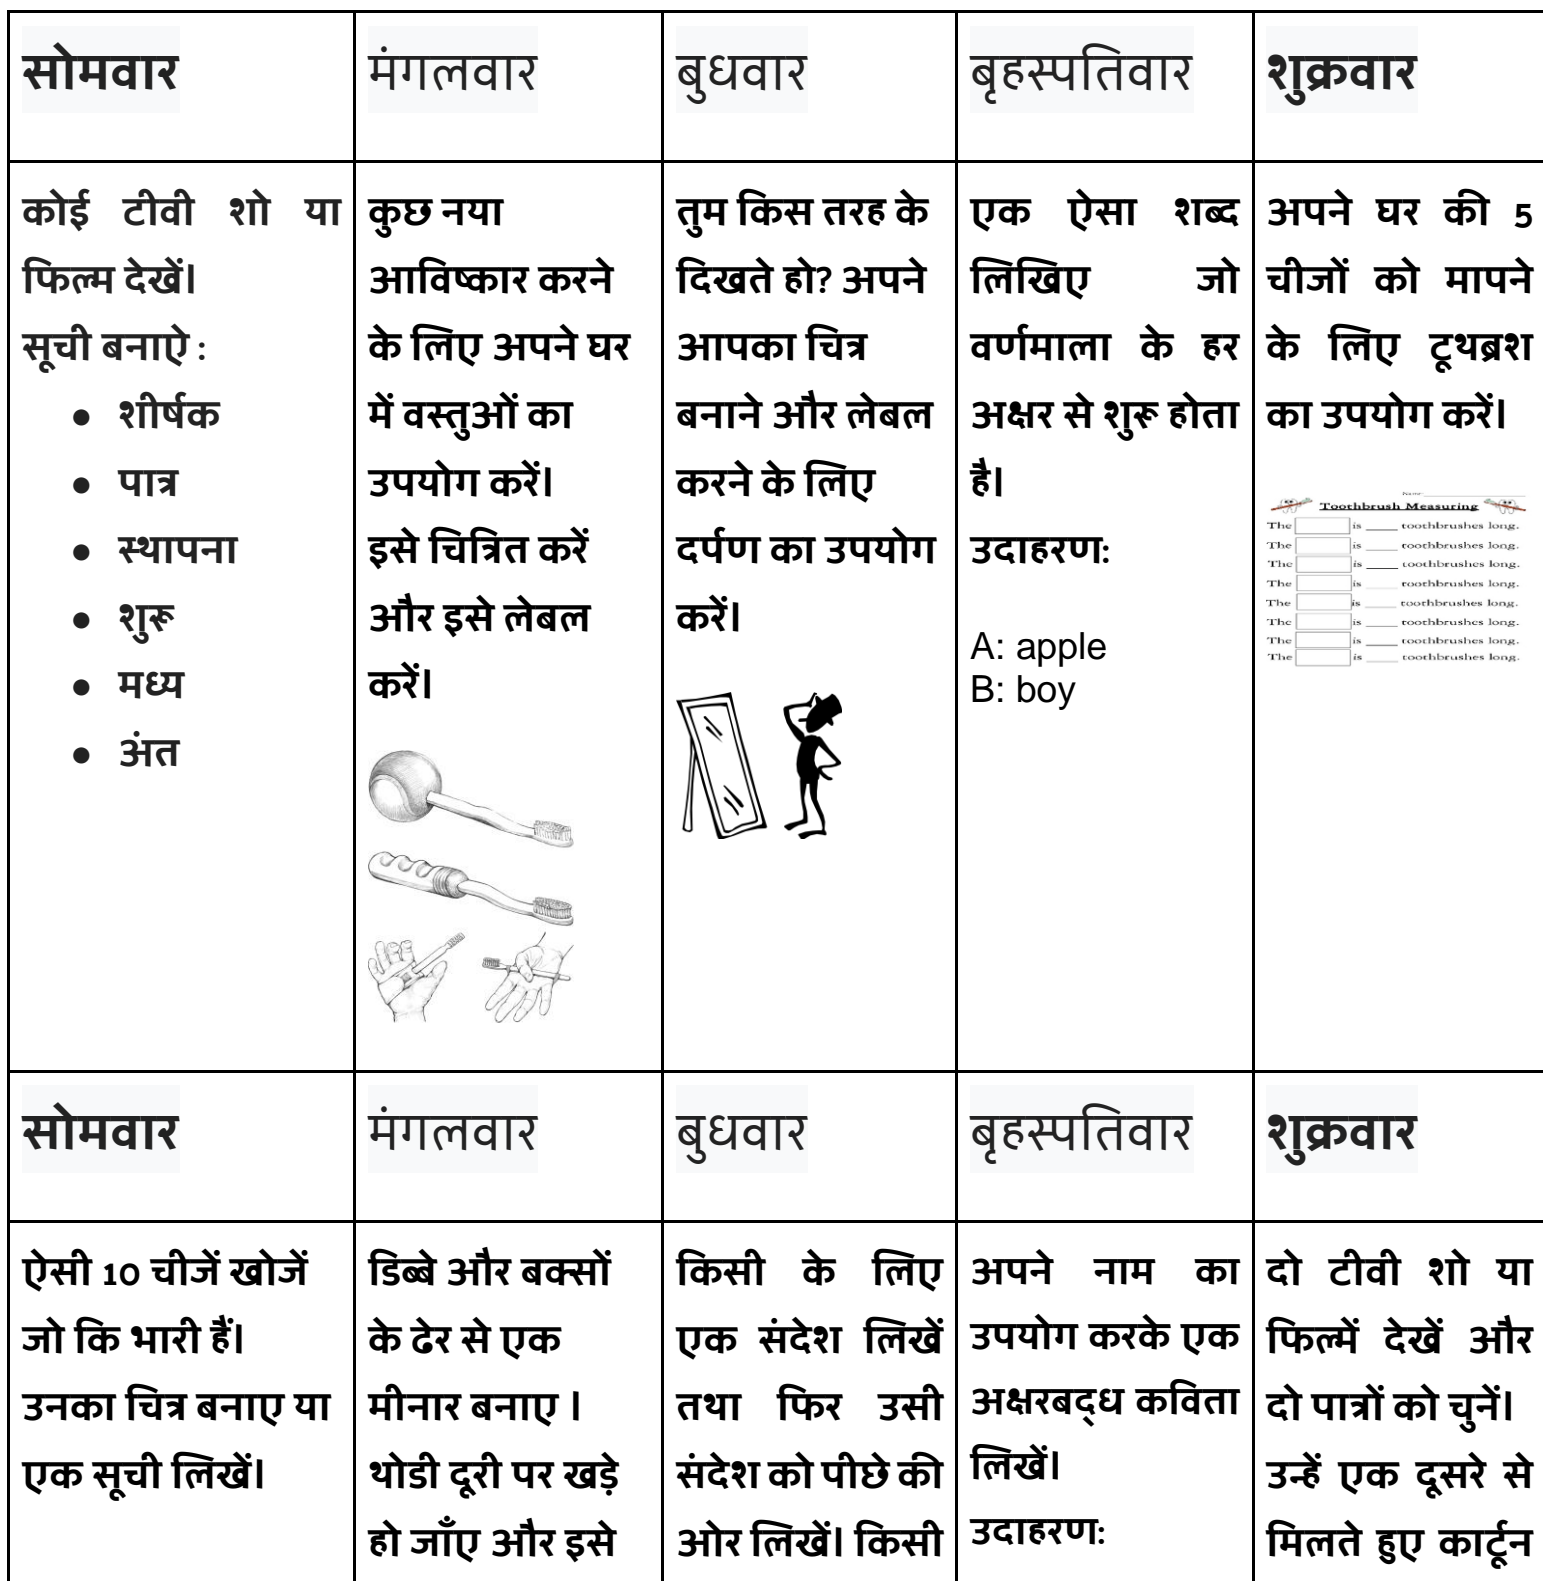 सोमवार
मंगलवार
बुधवार
बृहस्पतिवार
शुक्रवार
कोई टीवी शो या
फिल्म देखें।
सूची बनाऐ :
● शीर्षक
● पात्र
● स्थापना
● शुरू
● मध्य
● अंत
कुछ नया
आविष्कार करने
के लिए अपने घर
में वस्तुओं का
उपयोग करें।
इसे चित्रित करें
और इसे लेबल
करें।
तुम किस तरह के
दिखते हो? अपने
आपका चित्र
बनाने और लेबल
करने के लिए
दर्पण का उपयोग
करें।
एक ऐसा शब्द
लिखिए जो
वर्णमाला के हर
अक्षर से शुरू होता
है।
उदाहरण:
A: apple
B: boy
अपने घर की 5
चीजों को मापने
के लिए टूथब्रश
का उपयोग करें।
Name
Toothbrush Measuring
The is ____ toothbrushes long.
The is ____ toothbrushes long.
The is ____ toothbrushes long.
The is ____ toothbrushes long.
The is ____ toothbrushes long.
The is ____ toothbrushes long.
The is ____ toothbrushes long.
The is ____ toothbrushes long.
सोमवार
मंगलवार
बुधवार
बृहस्पतिवार
शुक्रवार
ऐसी 10 चीजें खोजें
जो कि भारी हैं।
उनका चित्र बनाए या
एक सूची लिखें।
डिब्बे और बक्सों
के ढेर से एक
मीनार बनाए ।
थोडी दूरी पर खड़े
हो जाँए और इसे
किसी के लिए
एक संदेश लिखें
तथा फिर उसी
संदेश को पीछे की
ओर लिखें। किसी
अपने नाम का
उपयोग करके एक
अक्षरबद्ध कविता
लिखें।
उदाहरण:
दो टीवी शो या
फिल्में देखें और
दो पात्रों को चुनें।
उन्हें एक दूसरे से
मिलते हुए कार्टून